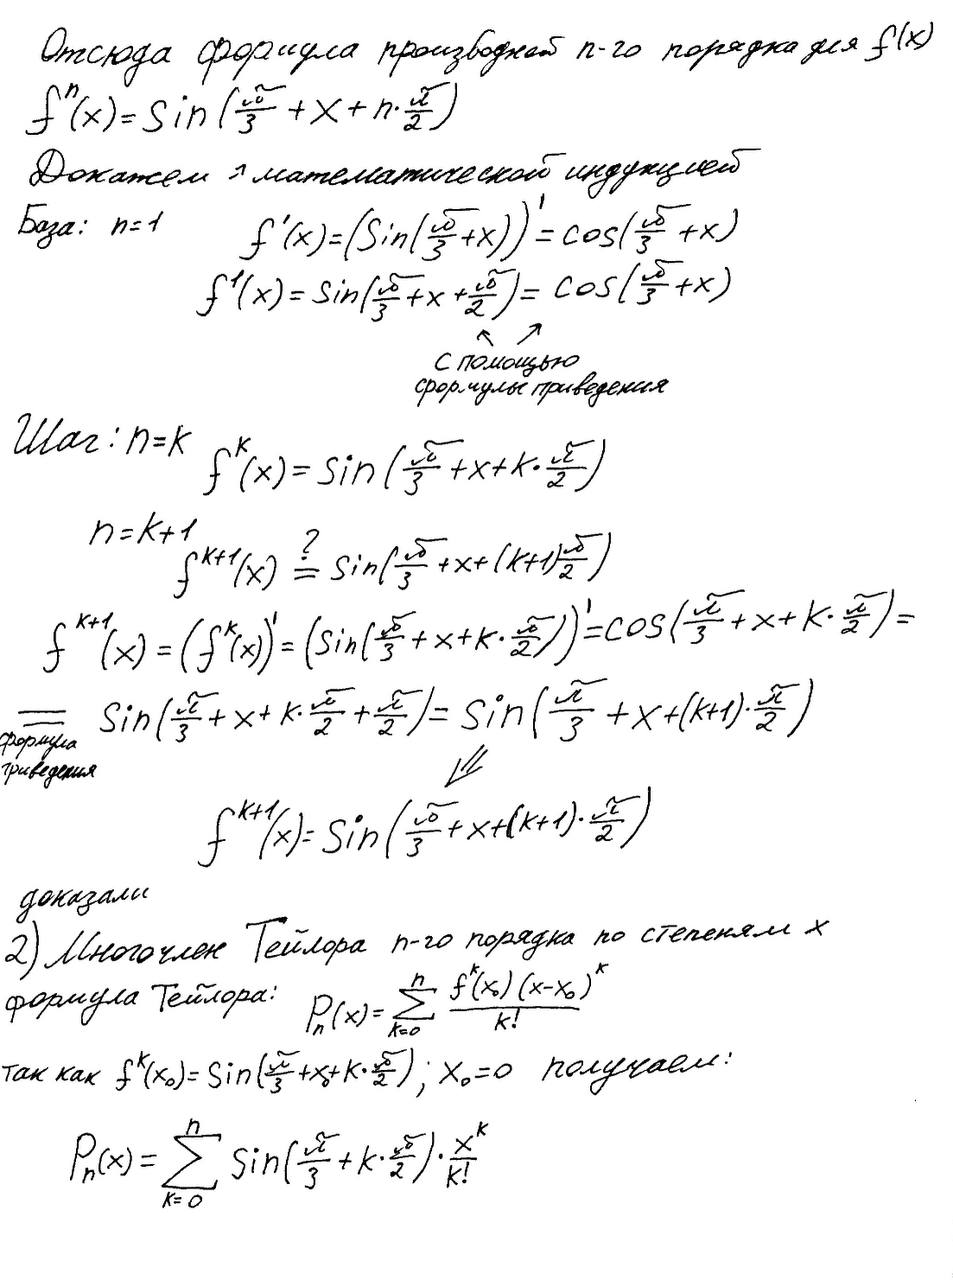 Отсюда формула производной n-го порядка для f(x)
fⁿ(x) = sin(π/3 + x + n·π/2)
Докажем математической индукцией
База: n=1 f'(x) = (sin(π/3 + x))' = cos(π/3 + x)
f¹(x) = sin(π/3 + x + π/2) = cos(π/3 + x)
↖ ↗
с помощью
формулы приведения
Шаг: n=k
f^k(x) = sin(π/3 + x + k·π/2)
n=k+1
f^{k+1}(x) ≟ sin(π/3 + x + (k+1)π/2)
f^{k+1}(x) = (f^k(x))' = (sin(π/3 + x + k·π/2))' = cos(π/3 + x + k·π/2) =
= sin(π/3 + x + k·π/2 + π/2) = sin(π/3 + x + (k+1)·π/2)
формула
приведения
⇓
f^{k+1}(x) = sin(π/3 + x + (k+1)·π/2)
доказали
2) Многочлен Тейлора n-го порядка по степеням x
формула Тейлора: Pₙ(x) = ∑_{k=0}^{n} f^k(x₀)(x-x₀)^k / k!
так как f^k(x₀) = sin(π/3 + x₀ + k·π/2); x₀=0 получаем:
Pₙ(x) = ∑_{k=0}^{n} sin(π/3 + k·π/2)·x^k/k!